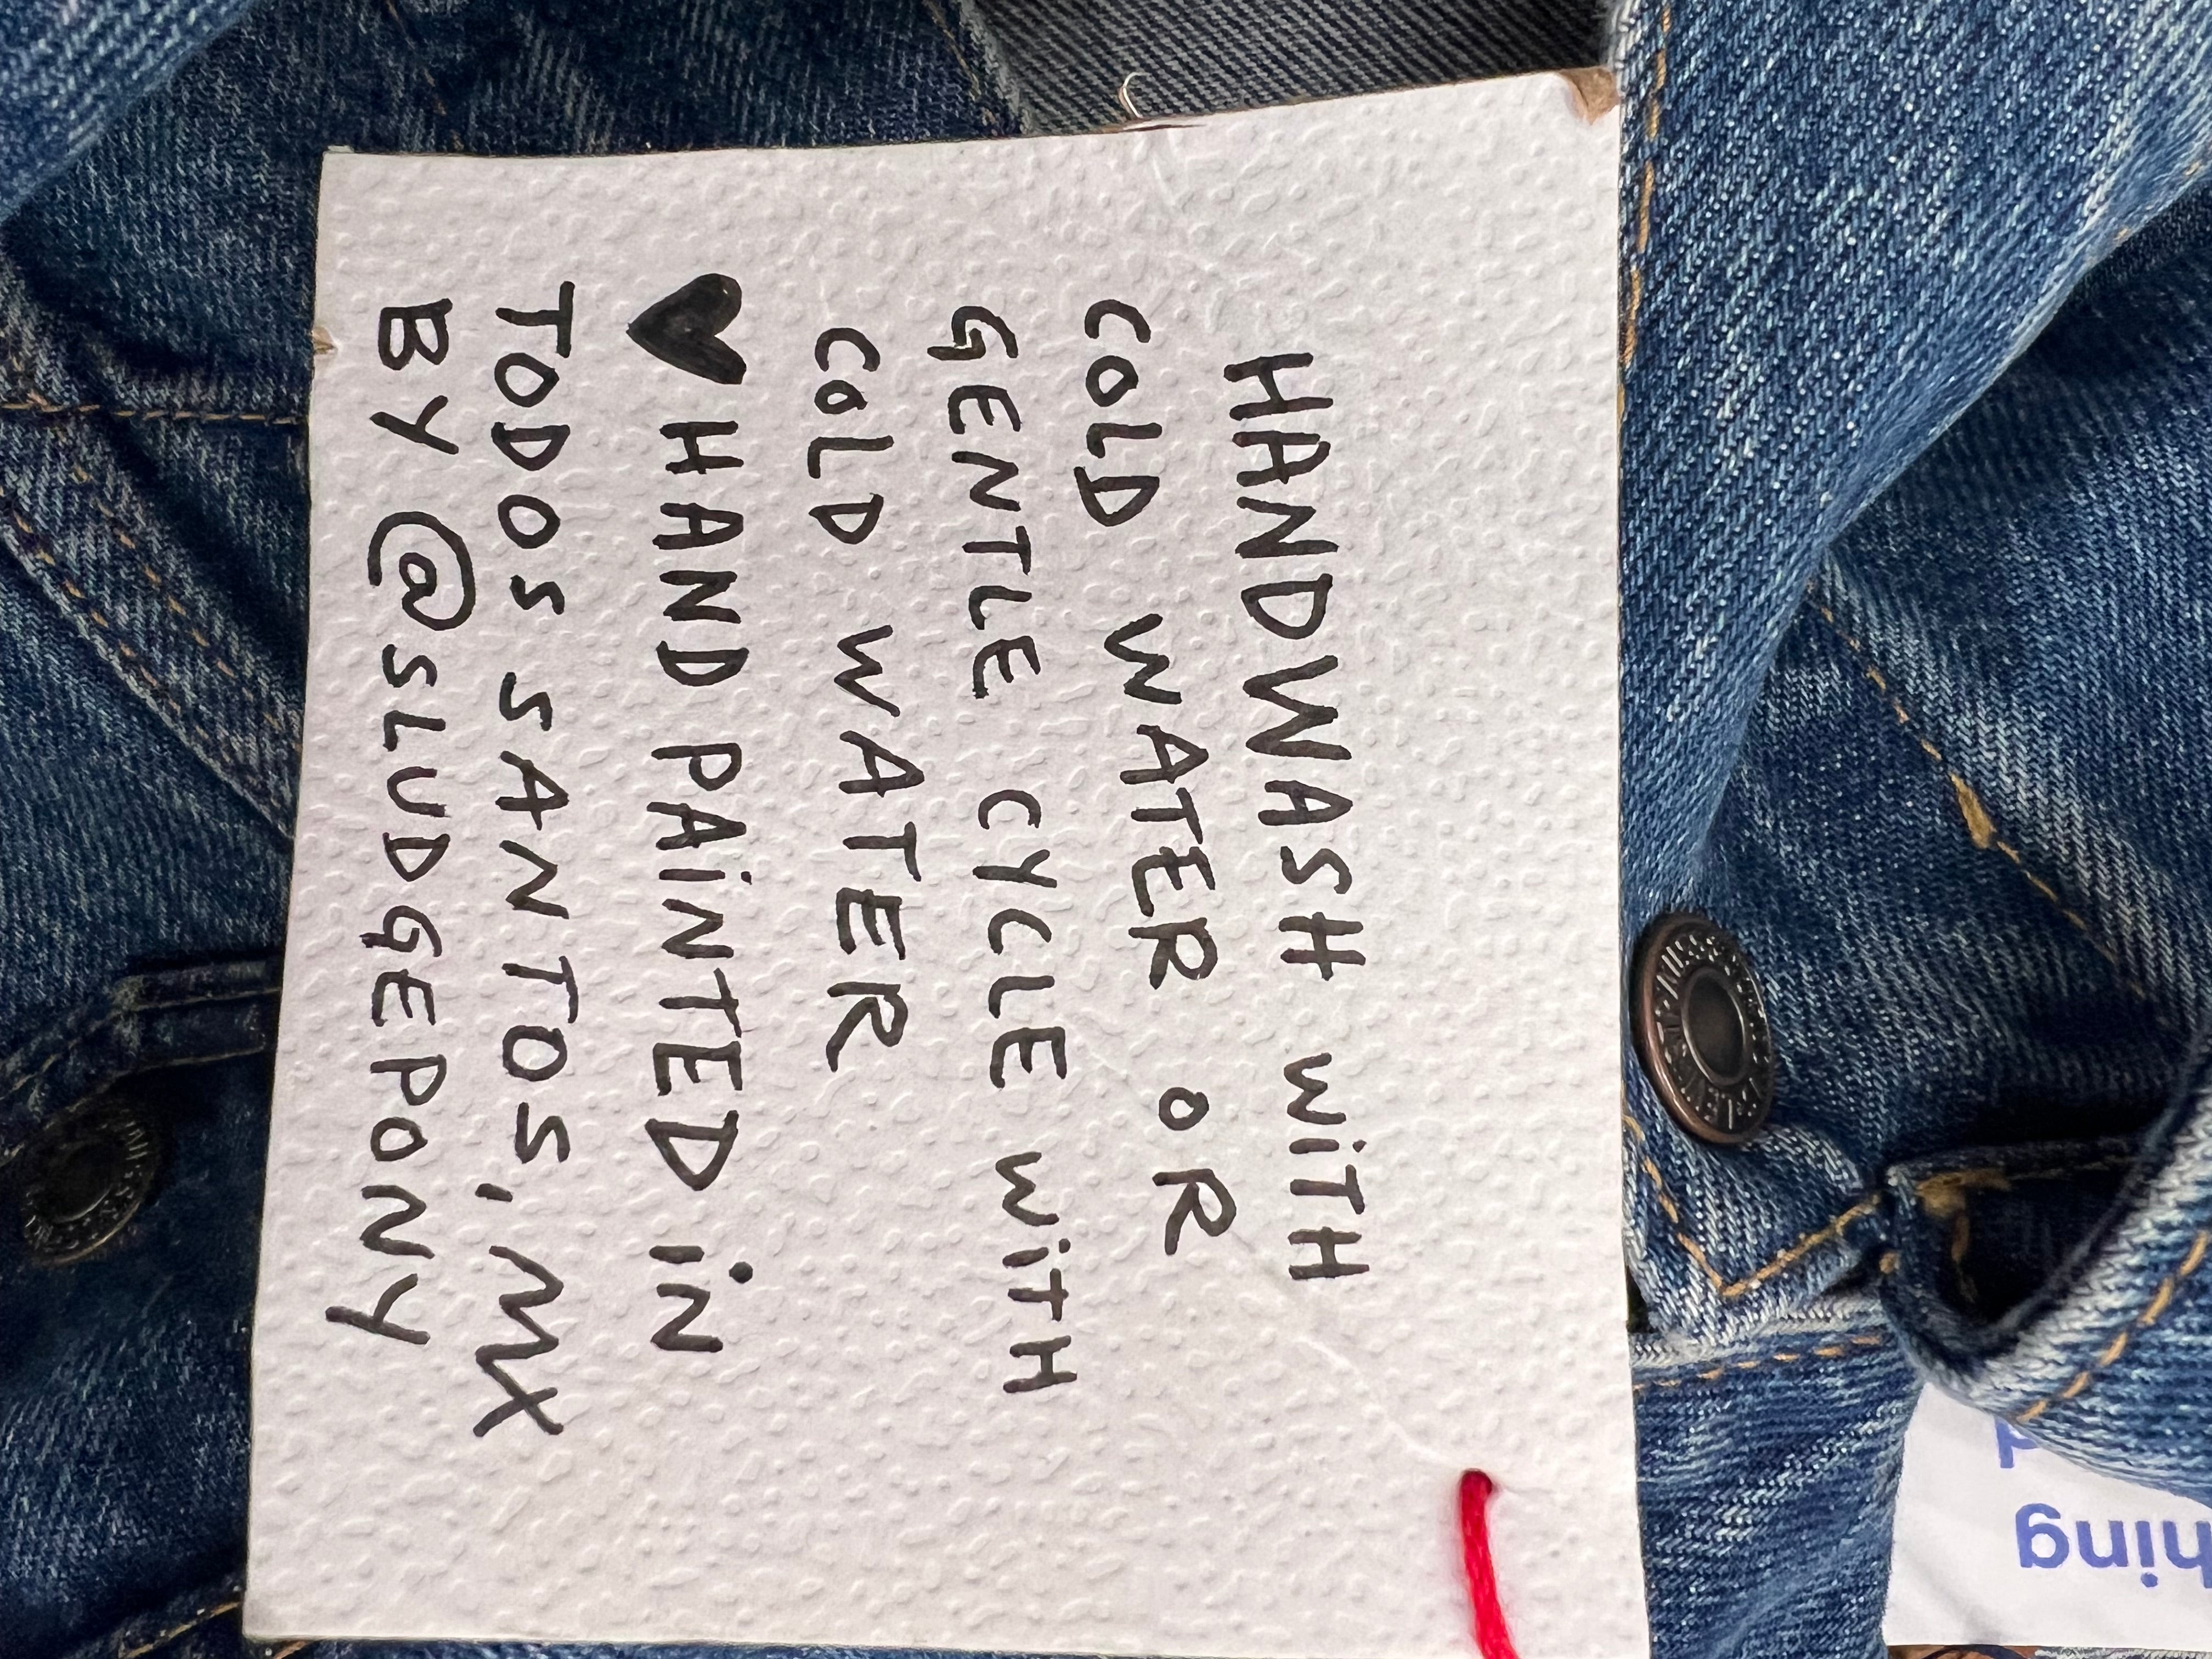 HANDWASH WiTH
COLD WATER OR
GENTLE CYCLE WiTH
COLD WATER
♥ HAND PAiNTED iN
TODOS SANTOS, MX
BY @SLUDGEPONY
hing